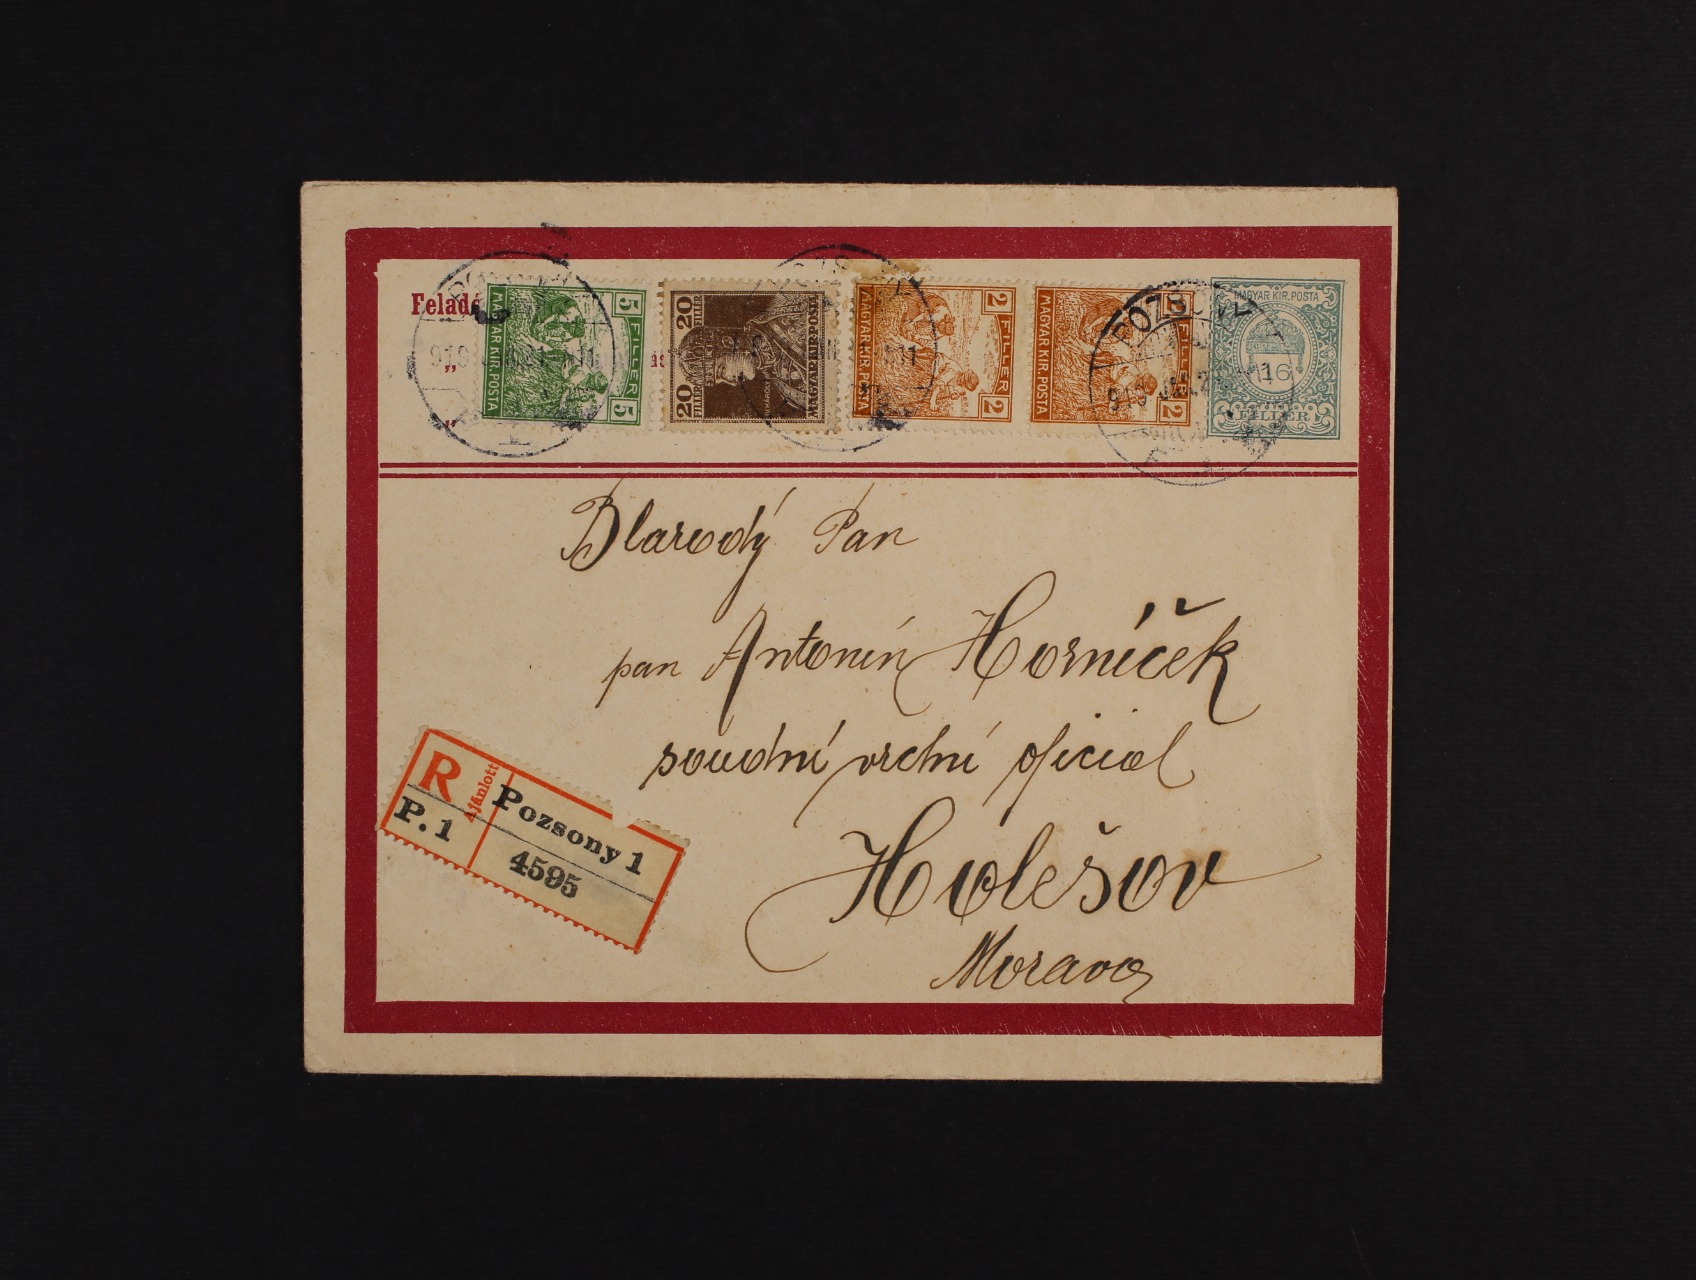 Felad
5 FILLER 5
MAGYAR KIR. POSTA
20 FILLÉR 20 FILLÉR
MAGYAR KIR. POSTA
IV. KÁROLY
2 FILLER 2
MAGYAR KIR. POSTA
2 FILLER 2
MAGYAR KIR. POSTA
MAGYAR KIR. POSTA
16
FILLÉR
POZSONY
Blarodý Pan
pan Antonín Horníček
soudní vrchní oficial
Holešov
Morava
R
Ajánlott
P. 1
Pozsony 1
4595